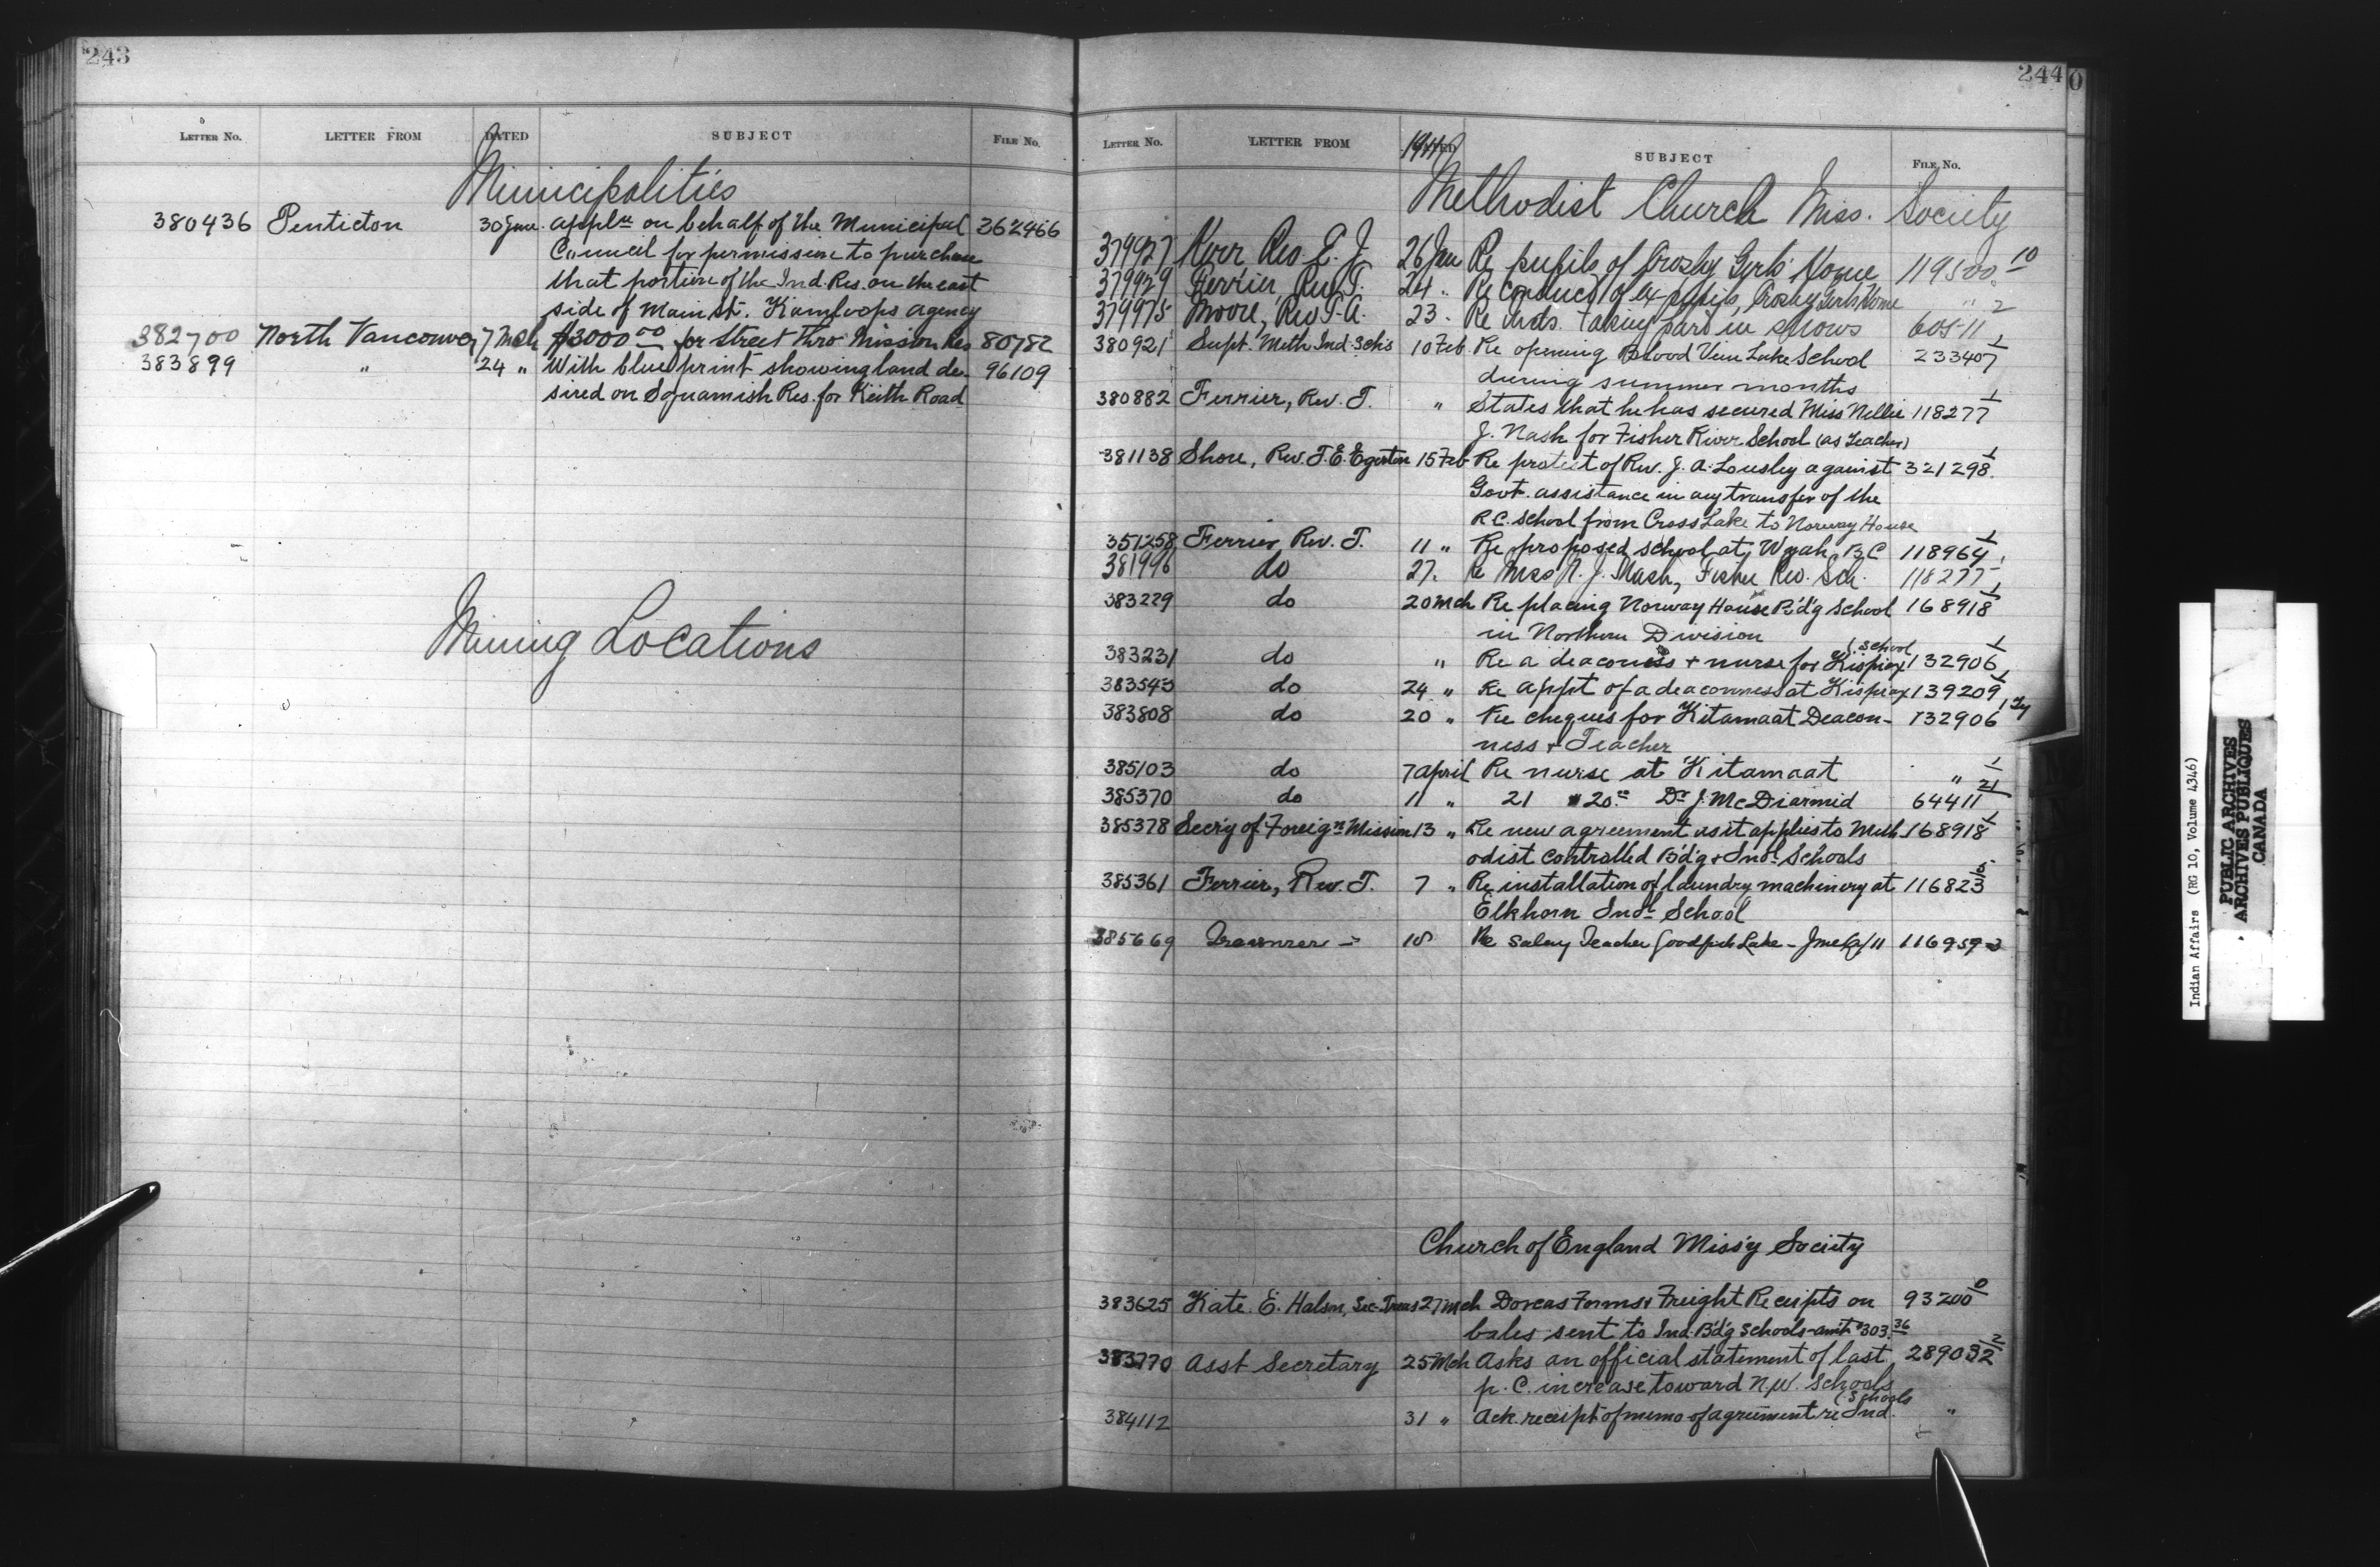 243
LETTER No. LETTER FROM DATED SUBJECT FILE No.
Municipalities
380436 Penticton 30 June. Appln on behalf of the Municipal 362466
Council for permission to purchase
that portion of the Ind. Res. on the east
side of Main St. Kamloops Agency
382700 North Vancouver 7 Mch $3000 00 for Street thro Mission Res 80782
383899 " 24 " With blue print showing land de- 96109
sired on Squamish Res. for Keith Road
Mining Locations
244
LETTER No. LETTER FROM 1911 SUBJECT FILE No.
Methodist Church Miss. Society
379927 Kerr Rev E. J. 26 Jan Re pupils of Crosby Girls' Home 119500 10
379929 Ferrier, Rev T. 24. Re conduct of ex-pupils, Crosby Girls Home " 2
379975 Moore, Rev T. A. 23. Re Inds. taking part in shows 60511
380921 Supt. Meth Ind. Sch's 10 Feb Re opening Blood Vein Lake School 233407 1
during summer months
380882 Ferrier, Rev. T. " States that he has secured Miss Nellie 118277 1
J. Nash for Fisher River School (as teacher)
381138 Shore, Rev. T. E. Egerton 15 Feb Re protest of Rev. J. A. Lousley against 321298 1
Govt. assistance in any transfer of the
R.C. School from Cross Lake to Norway House
351258 Ferrier Rev. T. 11 " Re proposed school at Wyah, B C 118964 1
381996 do 27. Re Miss N. J. Nash, Fisher Riv. Sch. 118277
383229 do 20 Mch Re placing Norway House B'd'g School 168918 1
in Northern Division
383231 do " Re a deaconess + nurse for Kispiax (School 132906 1
383543 do 24 " Re appt of a deaconness at Kispiax 139209 1
383808 do 20 " Re cheques for Kitamaat Deacon- 132906
ness + Teacher
385103 do 7 April Re nurse at Kitamaat " 1
385370 do 11 " 21 " 20.00 Dr J. McDiarmid 64411 21
385378 Secry of Foreign Mission 13 " Re new agreement as it applies to Meth 168918 1
odist controlled B'd'g & Indl. Schools
385361 Ferrier, Rev. T. 7 " Re installation of laundry machinery at 116823
Elkhorn Indl. School
385669 Treasurer 18 Re Salary Teacher Goodfish Lake - June 11 116959-2
Church of England Miss'y Society
383625 Kate. E. Halson, Sec-Treas 27 Mch Dorcas Forms & Freight Receipts on 93200 0
bales sent to Ind. B'd'g Schools-amt $303.36
383770 Asst Secretary 25 Mch Asks an official statement of last 289032 2
p. C. increase toward N.W. Schools
384112 31 " Ack. receipt of memo of agreement re Ind. (Schools "
Indian Affairs (RG 10, Volume 4346)
PUBLIC ARCHIVES
ARCHIVES PUBLIQUES
CANADA